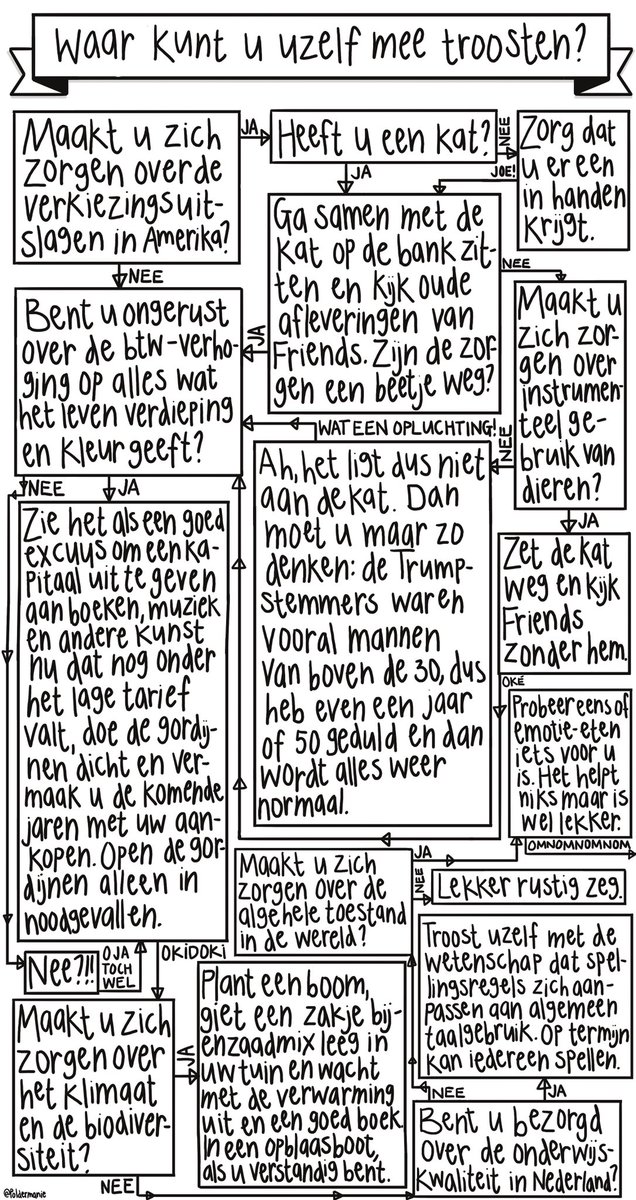 Waar kunt u uzelf mee troosten?
Maakt u zich
zorgen over de
verkiezingsuit-
slagen in Amerika?
JA
NEE
Heeft u een kat?
NEE
JA
Zorg dat
u er een
in handen
krijgt.
JOE!
Ga samen met de
kat op de bank zit-
ten en kijk oude
afleveringen van
Friends. Zijn de zor-
gen een beetje weg?
NEE
JA
Maakt u
zich zor-
gen over
instrumen-
teel ge-
bruik van
dieren?
NEE
JA
Bent u ongerust
over de btw-verho-
ging op alles wat
het leven verdieping
en kleur geeft?
NEE
JA
WAT EEN OPLUCHTING!
Ah, het ligt dus niet
aan de kat. Dan
moet u maar zo
denken: de Trump-
stemmers waren
vooral mannen
van boven de 30, dus
heb even een jaar
of 50 geduld en dan
wordt alles weer
normaal.
Zet de kat
weg en kijk
Friends
zonder hem.
OKÉ
Zie het als een goed
excuus om een ka-
pitaal uit te geven
aan boeken, muziek
en andere kunst
nu dat nog onder
het lage tarief
valt, doe de gordij-
nen dicht en ver-
maak u de komende
jaren met uw aan-
kopen. Open de gor-
dijnen alleen in
noodgevallen.
Nee?!!
O JA
TOCH
WEL
OKIDOKI
Probeer eens of
emotie-eten
iets voor u
is. Het helpt
niks maar is
wel lekker.
OMNOMNOMNOM
Maakt u zich
zorgen over de
algehele toestand
in de wereld?
JA
NEE
Lekker rustig zeg.
Maakt u zich
zorgen over
het klimaat
en de biodiver-
siteit?
JA
NEE
Plant een boom,
giet een zakje bij-
enzaadmix leeg in
uw tuin en wacht
met de verwarming
uit en een goed boek
in een opblaasboot,
als u verstandig bent.
Troost uzelf met de
wetenschap dat spel-
lingsregels zich aan-
passen aan algemeen
taalgebruik. Op termijn
kan iedereen spellen.
NEE
JA
Bent u bezorgd
over de onderwijs-
kwaliteit in Nederland?
@poldermanie